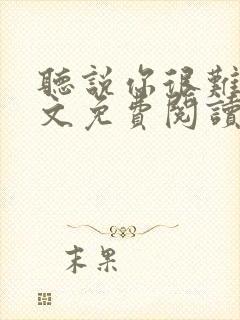 聽說你很難
文免費閱讀
末果